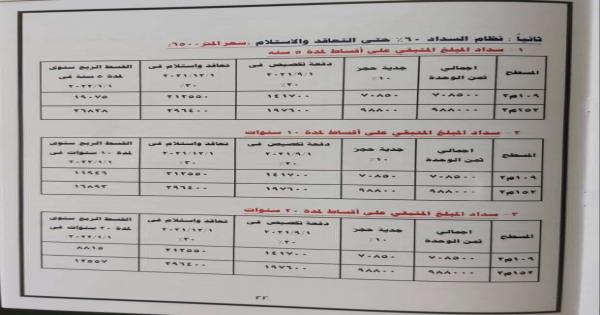 ثانياً : نظام السداد ٦٠٪ حتى التعاقد والاستلام (سعر المتر ٦٥٠٠)
١- سداد المبلغ المتبقي على أقساط لمدة ٥ سنه
المسطح | اجمالى ثمن الوحدة | جدية حجز ١٠٪ | دفعة تخصيص فى ٢٠٢١/٩/١ ٢٠٪ | تعاقد واستلام فى ٢٠٢١/١٢/١ ٣٠٪ | القسط الربع سنوى لمدة ٥ سنة فى ٢٠٢٢/١/١
١٠٩م٢ | ٧٠٨٥٠٠ | ٧٠٨٥٠ | ١٤١٧٠٠ | ٢١٢٥٥٠ | ١٩٠٧٥
١٥٢م٢ | ٩٨٨٠٠٠ | ٩٨٨٠٠ | ١٩٧٦٠٠ | ٢٩٦٤٠٠ | ٢٦٨٣٨
٢- سداد المبلغ المتبقي على أقساط لمدة ١٠ سنوات
المسطح | اجمالى ثمن الوحدة | جدية حجز ١٠٪ | دفعة تخصيص فى ٢٠٢١/٩/١ ٢٠٪ | تعاقد واستلام فى ٢٠٢١/١٢/١ ٣٠٪ | القسط الربع سنوى لمدة ١٠ سنوات فى ٢٠٢٢/١/١
١٠٩م٢ | ٧٠٨٥٠٠ | ٧٠٨٥٠ | ١٤١٧٠٠ | ٢١٢٥٥٠ | ١١٩٤٦
١٥٢م٢ | ٩٨٨٠٠٠ | ٩٨٨٠٠ | ١٩٧٦٠٠ | ٢٩٦٤٠٠ | ١٦٨٩٣
٣- سداد المبلغ المتبقي على أقساط لمدة ٢٠ سنوات
المسطح | اجمالى ثمن الوحدة | جدية حجز ١٠٪ | دفعة تخصيص فى ٢٠٢١/٩/١ ٢٠٪ | تعاقد واستلام فى ٢٠٢١/١٢/١ ٣٠٪ | القسط الربع سنوى لمدة ٢٠ سنوات فى ٢٠٢٢/١/١
١٠٩م٢ | ٧٠٨٥٠٠ | ٧٠٨٥٠ | ١٤١٧٠٠ | ٢١٢٥٥٠ | ٨٨١٥
١٥٢م٢ | ٩٨٨٠٠٠ | ٩٨٨٠٠ | ١٩٧٦٠٠ | ٢٩٦٤٠٠ | ١٢٥٥٧
٢٢